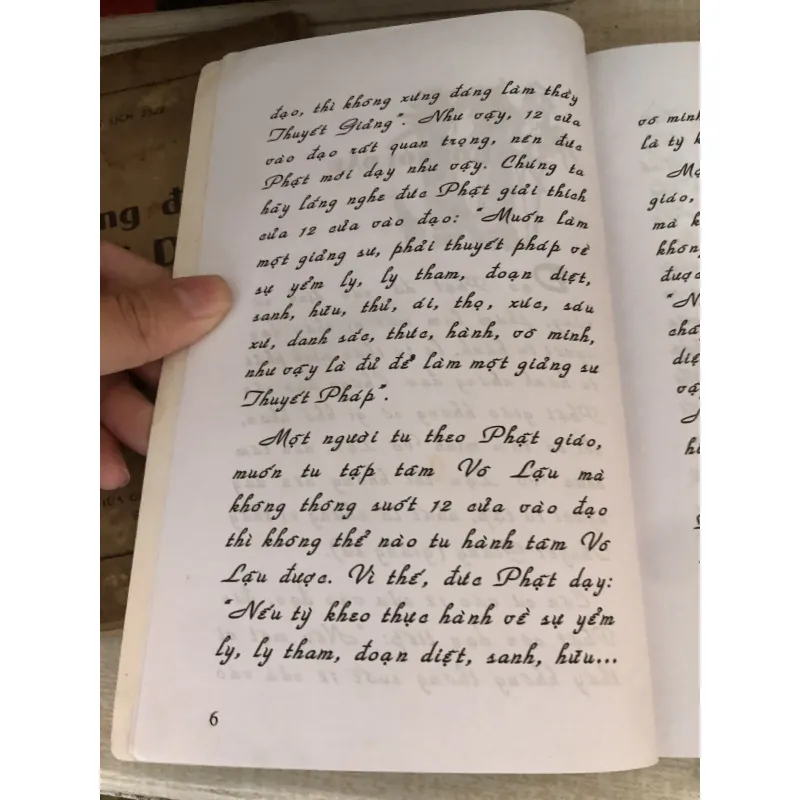 đạo, thì không xứng đáng làm thầy
Thuyết Giảng". Như vậy, 12 cửa
vào đạo rất quan trọng, nên đức
Phật mới dạy như vậy. Chúng ta
hãy lắng nghe đức Phật giải thích
cửa 12 cửa vào đạo: "Muốn làm
một giảng sư, phải thuyết pháp về
sự yểm ly, ly tham, đoạn diệt,
sanh, hữu, thủ, ái, thọ, xúc, sáu
xứ, danh sắc, thức, hành, vô minh,
như vậy là đủ để làm một giảng sư
Thuyết Pháp".
Một người tu theo Phật giáo,
muốn tu tập tâm Vô Lậu mà
không thông suốt 12 cửa vào đạo
thì không thể nào tu hành tâm Vô
Lậu được. Vì thế, đức Phật dạy:
"Nếu tỳ kheo thực hành về sự yểm
ly, ly tham, đoạn diệt, sanh, hữu...
6
vô minh
là tỳ k
giáo,
mà k
không
được